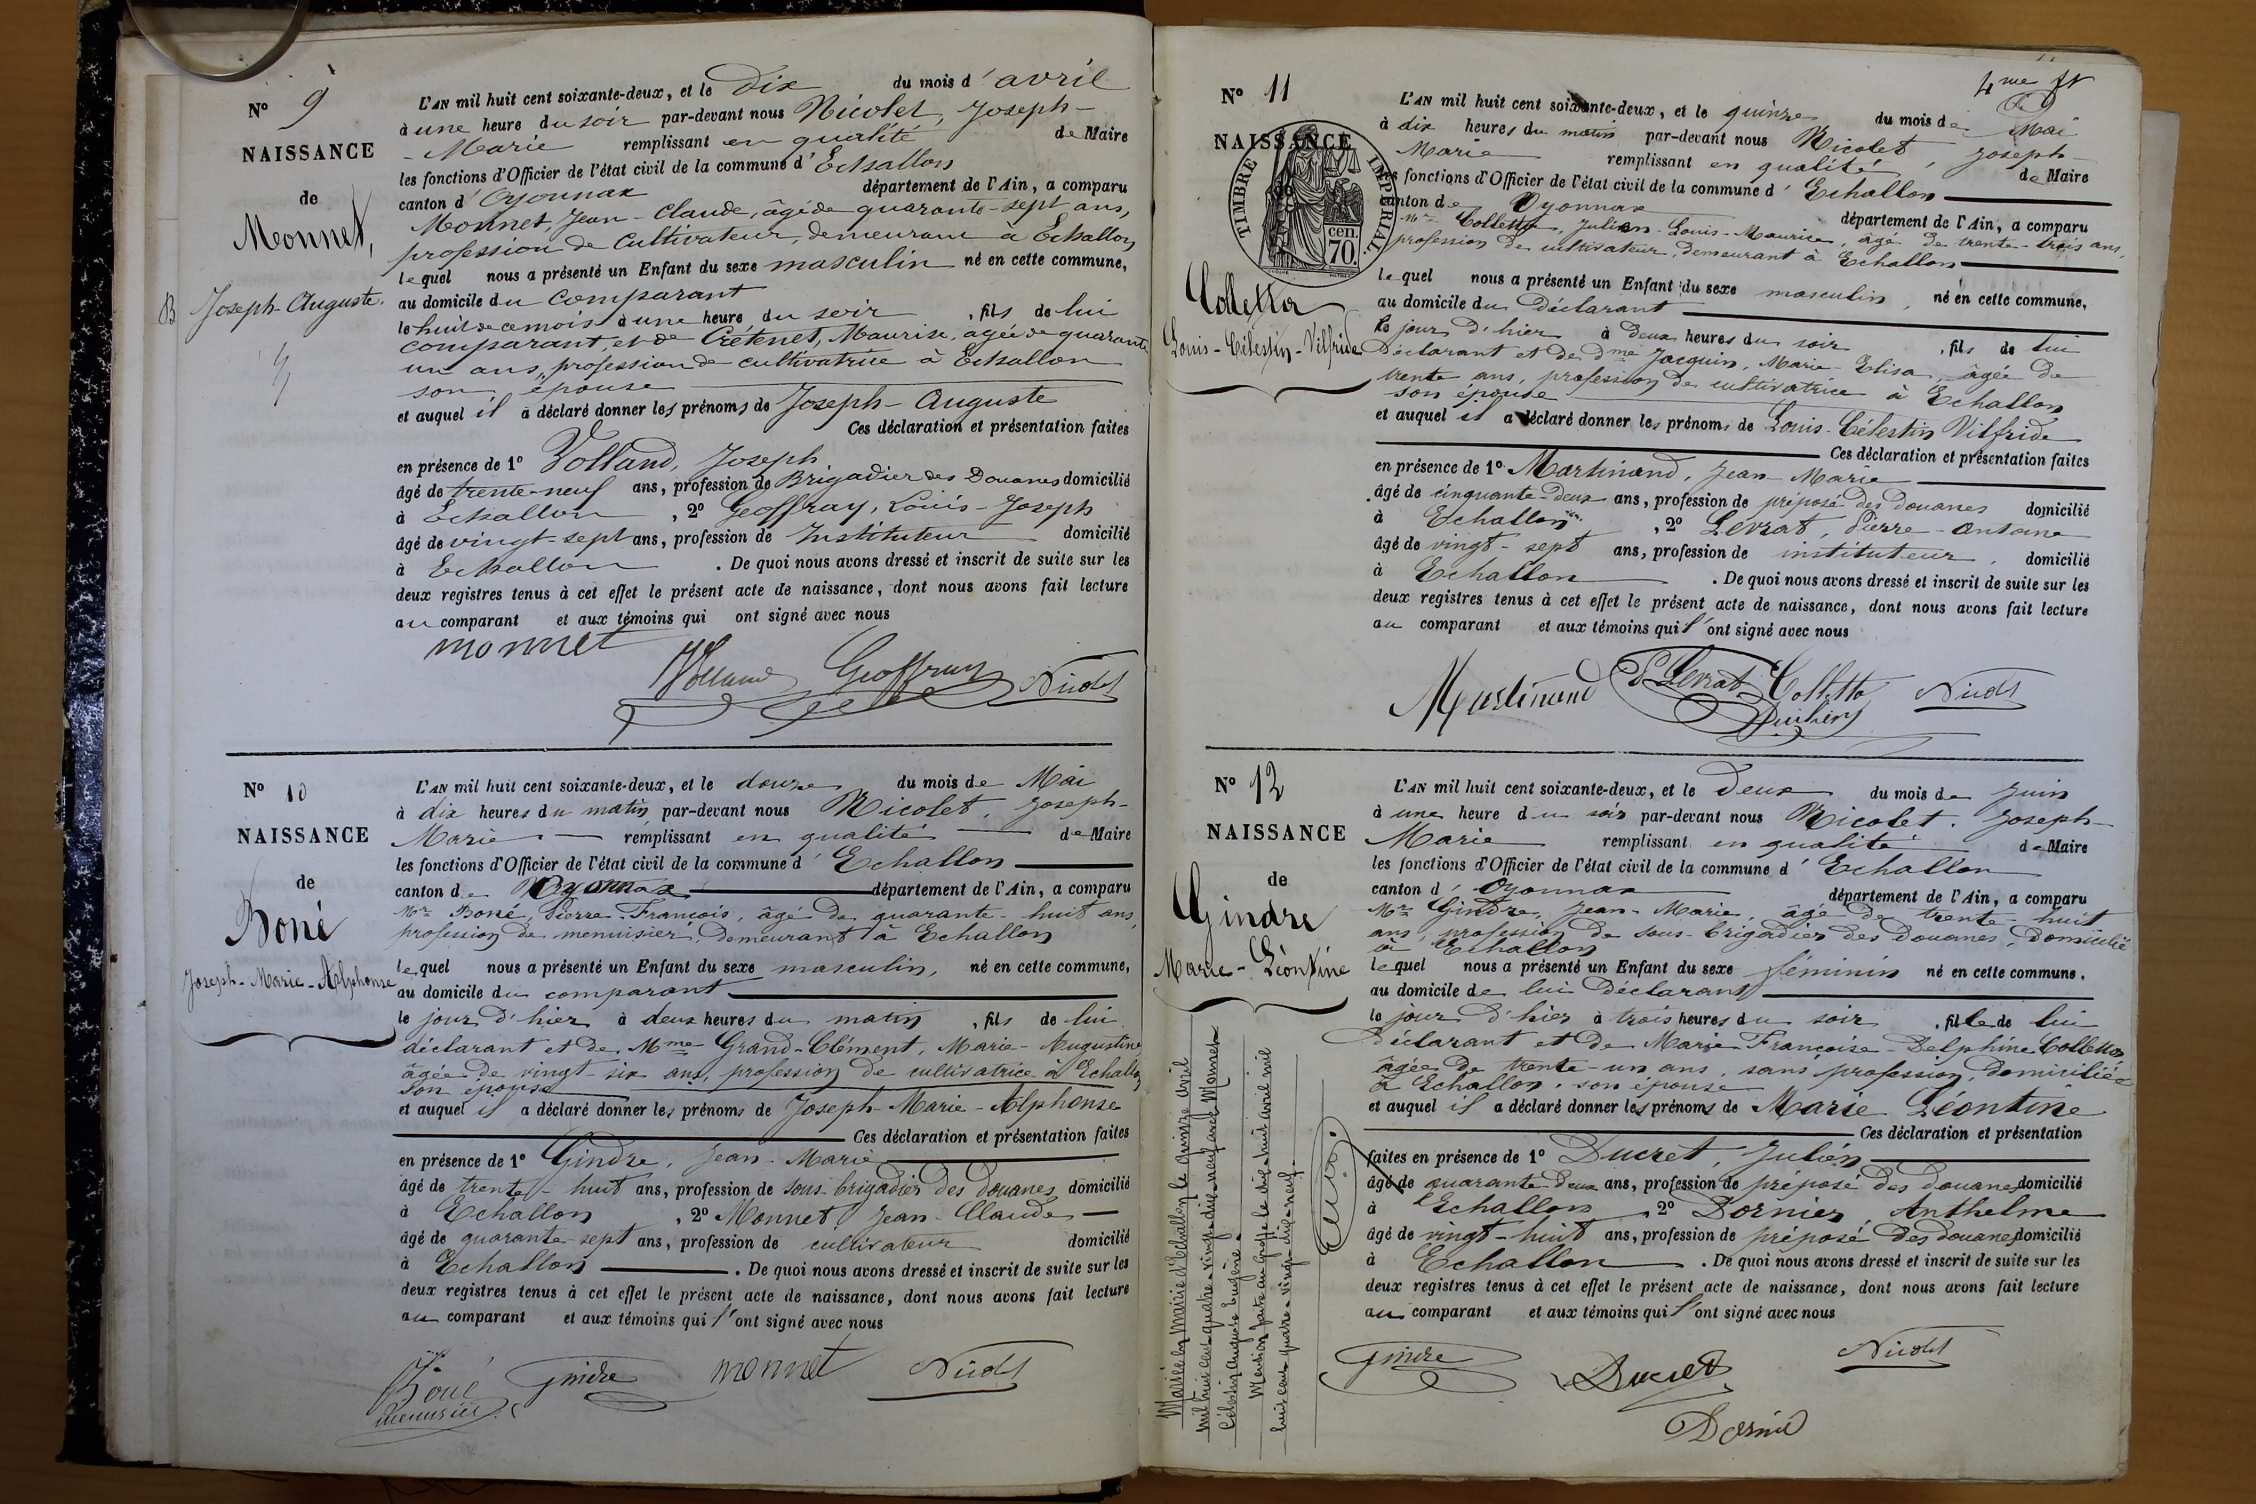 N° 9
NAISSANCE
de
Monnet,
Joseph-Auguste.
B
L'AN mil huit cent soixante-deux, et le dix du mois d'avril
à une heure du soir par-devant nous Nicolet, Joseph-
-Marie remplissant en qualité de Maire
les fonctions d'Officier de l'état civil de la commune d'Echallon
canton d'Oyonnax département de l'Ain, a comparu
Monnet, Jean-Claude, âgé de quarante-sept ans,
profession de Cultivateur, demeurant à Echallon
lequel nous a présenté un Enfant du sexe masculin né en cette commune,
au domicile du comparant
le huit de ce mois à une heure du soir, fils de lui
comparant et de Crétenet, Maurise, âgée de quarante
un ans, profession de cultivatrice à Echallon
son épouse
et auquel il a déclaré donner les prénoms de Joseph-Auguste
Ces déclaration et présentation faites
en présence de 1° Volland, Joseph
âgé de trente-neuf ans, profession de Brigadier des Douanes domicilié
à Echallon, 2° Geoffray, Louis-Joseph
âgé de vingt-sept ans, profession de Instituteur domicilié
à Echallon. De quoi nous avons dressé et inscrit de suite sur les
deux registres tenus à cet effet le présent acte de naissance, dont nous avons fait lecture
au comparant et aux témoins qui ont signé avec nous
monnet
Volland Geoffray Nicolet
N° 10
NAISSANCE
de
Boné
Joseph-Marie-Alphonse
L'AN mil huit cent soixante-deux, et le douze du mois de Mai
à dix heures du matin par-devant nous Nicolet, Joseph-
Marie remplissant en qualité de Maire
les fonctions d'Officier de l'état civil de la commune d'Echallon
canton de Oyonnax département de l'Ain, a comparu
Mr Boné, Pierre-François, âgé de quarante-huit ans,
profession de menuisier, demeurant à Echallon
lequel nous a présenté un Enfant du sexe masculin, né en cette commune,
au domicile du comparant
le jour d'hier à deux heures du matin, fils de lui
déclarant et de Mme Grand-Clément, Marie-Augustine
âgée de vingt-six ans, profession de cultivatrice à Echallon
son épouse
et auquel il a déclaré donner les prénoms de Joseph-Marie-Alphonse
Ces déclaration et présentation faites
en présence de 1° Gindre, Jean-Marie
âgé de trente-huit ans, profession de sous-brigadier des douanes domicilié
à Echallon, 2° Monnet, Jean-Claude
âgé de quarante-sept ans, profession de cultivateur domicilié
à Echallon. De quoi nous avons dressé et inscrit de suite sur les
deux registres tenus à cet effet le présent acte de naissance, dont nous avons fait lecture
au comparant et aux témoins qui l'ont signé avec nous
Boné gindre monnet Nicolet
menuisier
4me
N° 11
NAISSANCE
de
TIMBRE IMPÉRIAL
cen. 70.
Colletta
Louis-Célestin-Vilfride
L'AN mil huit cent soixante-deux, et le quinze du mois de Mai
à dix heures du matin par-devant nous Nicolet, Joseph-
Marie remplissant en qualité de Maire
les fonctions d'Officier de l'état civil de la commune d'Echallon
canton de Oyonnax département de l'Ain, a comparu
Mr Colletta, Julien-Louis-Maurice, âgé de trente-trois ans,
profession de cultivateur, demeurant à Echallon
lequel nous a présenté un Enfant du sexe masculin, né en cette commune,
au domicile du déclarant
le jour d'hier à deux heures du soir, fils de lui
déclarant et de dme Jacquin, Marie-Elisa, âgée de
trente ans, profession de cultivatrice à Echallon
son épouse
et auquel il a déclaré donner les prénoms de Louis-Célestin Vilfride
Ces déclaration et présentation faites
en présence de 1° Martinand, Jean-Marie
âgé de cinquante-deux ans, profession de préposé des douanes domicilié
à Echallon, 2° Levrat, Pierre-Antoine
âgé de vingt-sept ans, profession de instituteur, domicilié
à Echallon. De quoi nous avons dressé et inscrit de suite sur les
deux registres tenus à cet effet le présent acte de naissance, dont nous avons fait lecture
au comparant et aux témoins qui l'ont signé avec nous
Martinand P Levrat Colletta Nicolet
N° 12
NAISSANCE
de
Gindre
Marie-Léontine
L'AN mil huit cent soixante-deux, et le deux du mois de Juin
à une heure du soir par-devant nous Nicolet, Joseph-
Marie remplissant en qualité de Maire
les fonctions d'Officier de l'état civil de la commune d'Echallon
canton d'Oyonnax département de l'Ain, a comparu
Mr Gindre, Jean-Marie, âgé de trente-huit
ans, profession de sous-brigadier des douanes, domicilié
à Echallon
lequel nous a présenté un Enfant du sexe féminin né en cette commune,
au domicile de lui déclarant
le jour d'hier à trois heures du soir, fille de lui
déclarant et de Marie Françoise-Delphine Colletta
âgée de trente-un ans, sans profession, domiciliée
à Echallon, son épouse
et auquel il a déclaré donner les prénoms de Marie Léontine
Ces déclaration et présentation
faites en présence de 1° Ducret, Julien
âgé de quarante deux ans, profession de préposé des douanes domicilié
à Echallon 2° Dornier Anthelme
âgé de vingt-huit ans, profession de préposé des douanes domicilié
à Echallon. De quoi nous avons dressé et inscrit de suite sur les
deux registres tenus à cet effet le présent acte de naissance, dont nous avons fait lecture
au comparant et aux témoins qui l'ont signé avec nous
gindre Ducret Nicolet
Dornier
Mariée en mairie d'Echallon le quinze avril
mil huit cent quatre-vingt-dix-neuf avec Monnet
Célestin Auguste Eugène.
Mention faite au Greffe le dix-huit avril mil
huit cent quatre-vingt-dix-neuf.